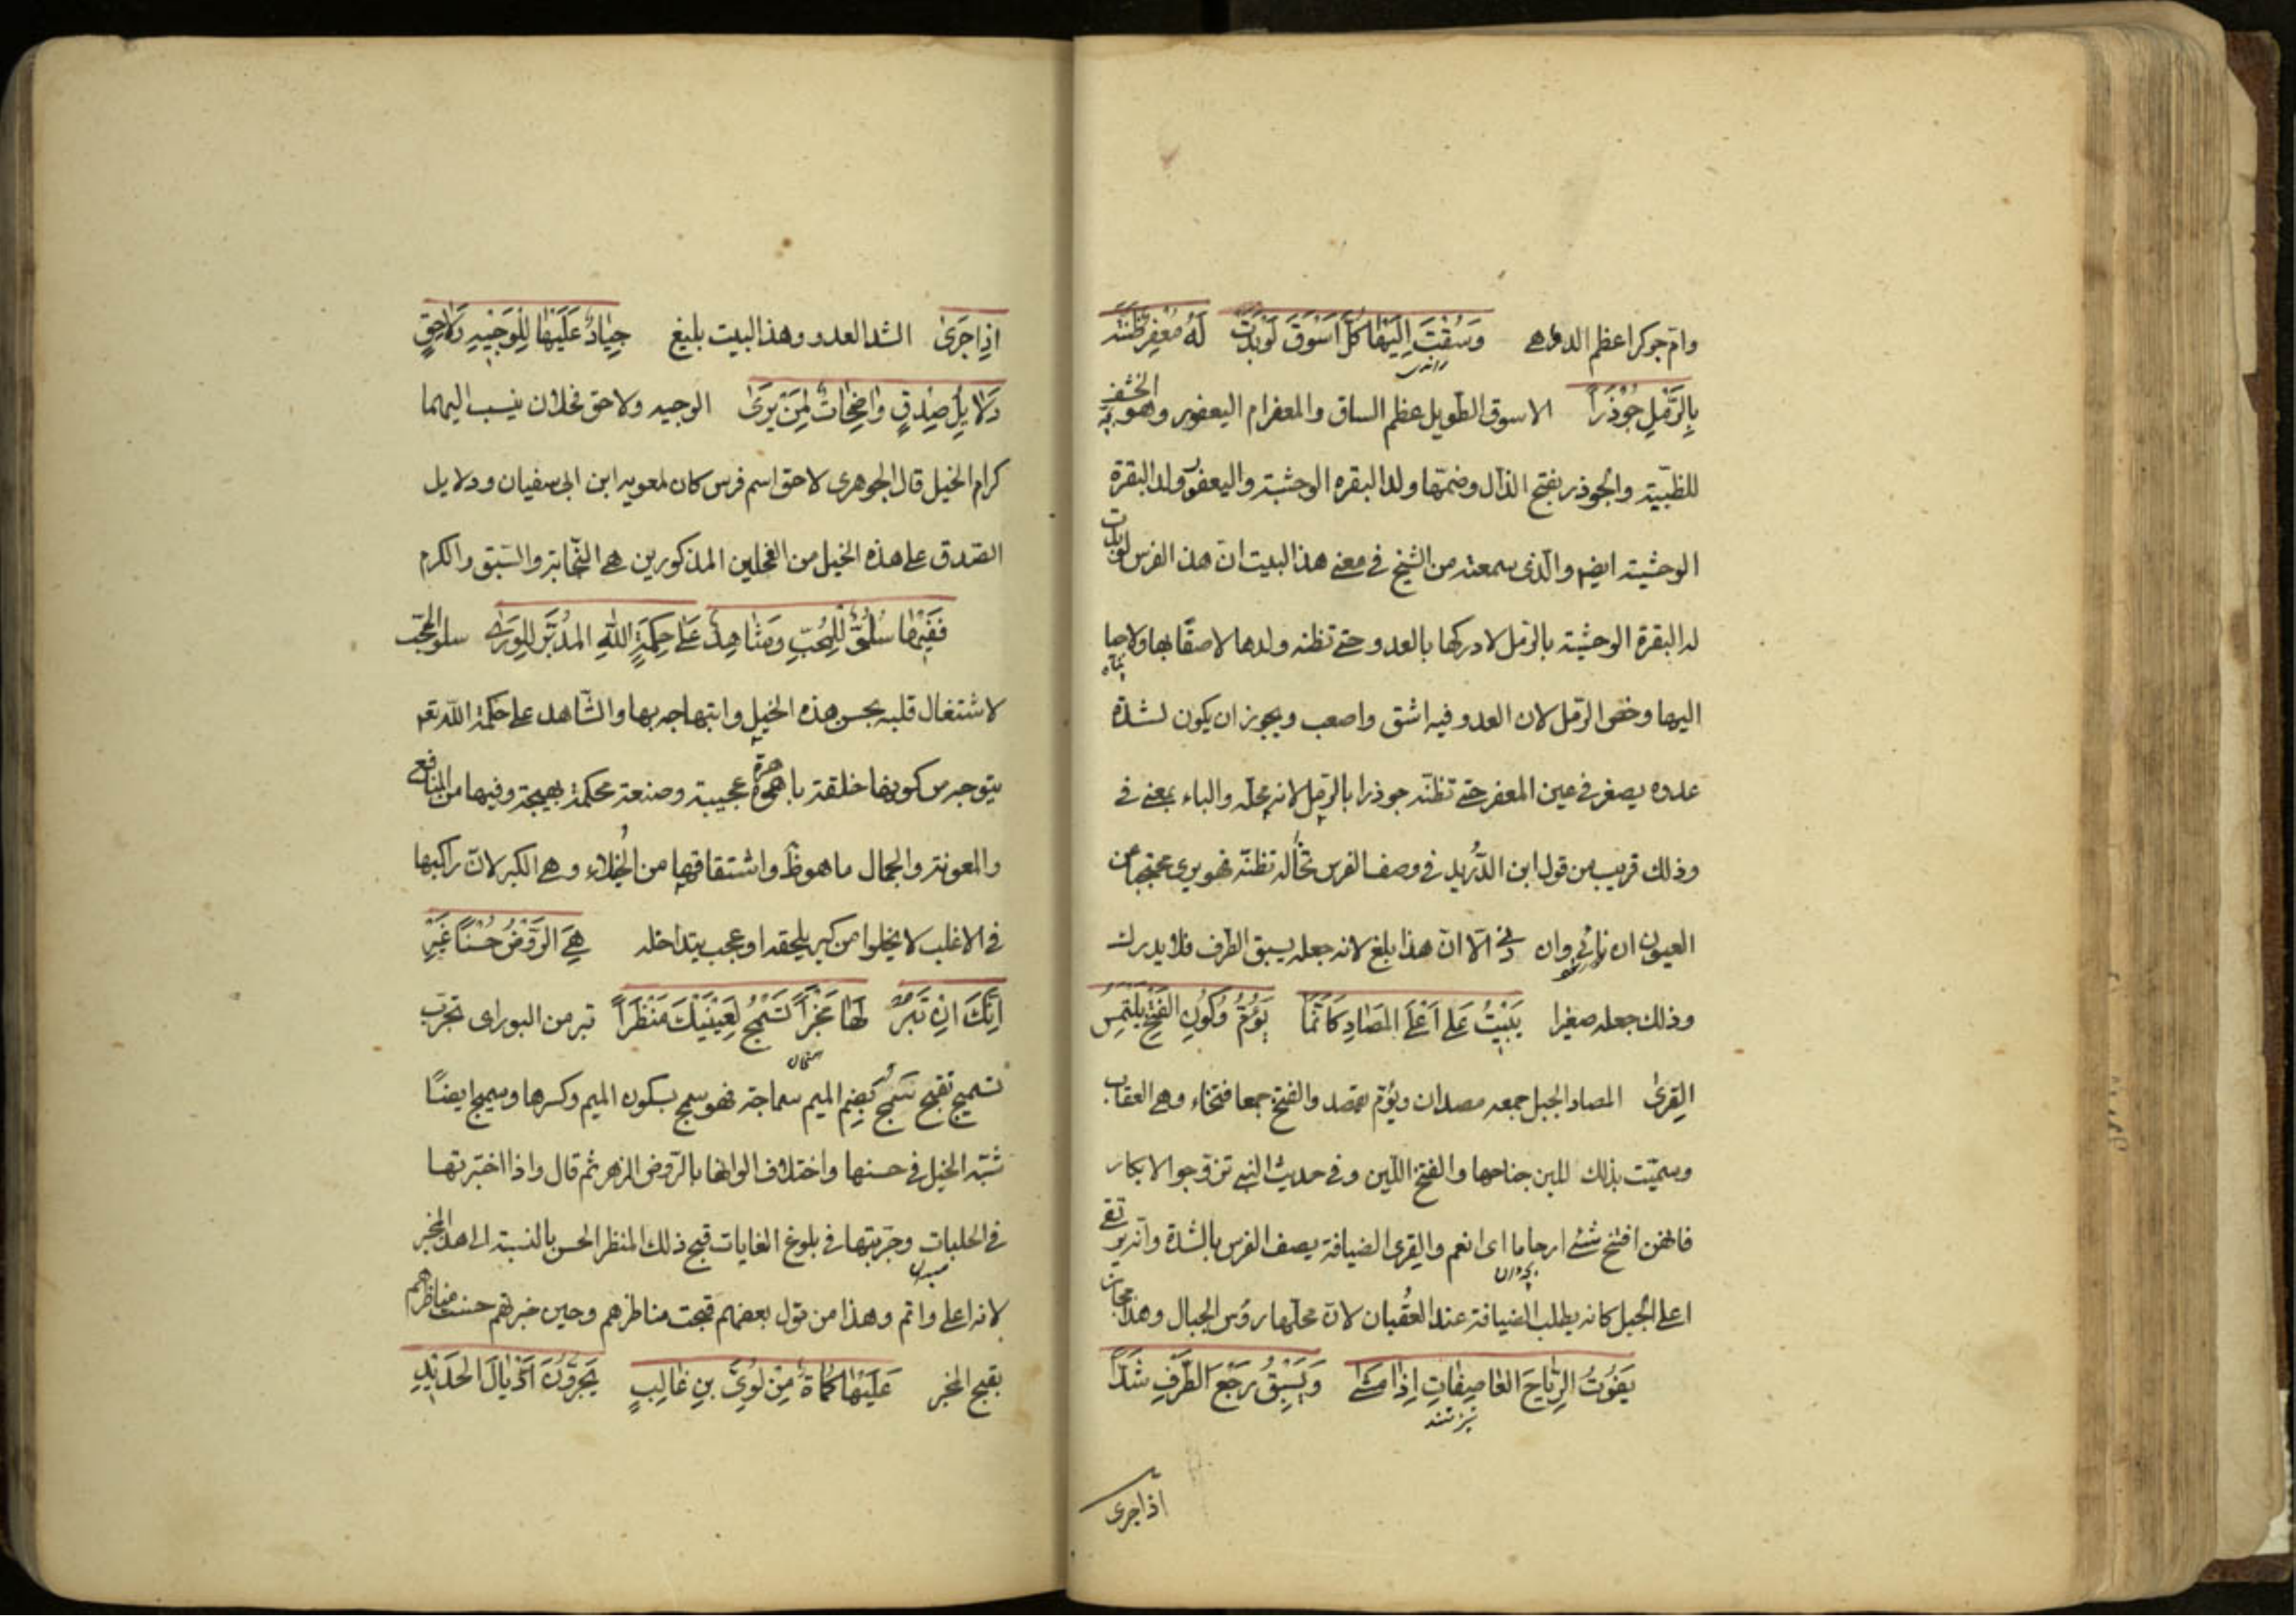 وام جوكر اعظم الدواهے وَسُقْتَ اِلَيْهَا كُلَّ اَسْوَقَ لَوْ بَدَتْ لَهُ مُعْفِرٌ ظَنَّتْهُ
بِالرَّمْلِ جُؤْذَراً الاسوق الطويل عظم الساق والمعفر ام اليعفور وهو الخشف
للظبية والجوذر بفتح الذال وضمّها ولد البقره الوحشية واليعفور ولد البقرة
الوحشية ايضا والّذى سمعته من الشيخ فى معنے هذا البيت ان هذا الفرس لو بدت
له البقرة الوحشية بالرّمل لادركها بالعدو حتے تظنه ولدها لاصقًا بها ولاجيا
اليها وخص الرّمل لان العدو فيه اشق واصعب ويجوز ان يكون لشدّة
عدوه يصغر فى عين المعفر حتے تظنّه جوذرا بالرّمل لانه محلّه والباء بمعنے فى
وذلك قريب من قول ابن الدّريد فى وصف الفرس تخاله تظنّه فهو يرى محتجبا عن
العيون ان نائى وان دنى الّا انّ هذا بلغ لانه جعله يسبق الطرف فلا يدرك
وذلك جعله صغيرا يَبِيْتُ عَلٰى اَعْلَى المَصَادِ كَاَنَّمَا يَؤُمُّ وُكُونَ الفَتْحِ يَلْتَمِسُ
القِرىٰ المصاد الجبل جمعه مصدان ويؤم يقصد والفتخ جمعا فتخاء وهى العقاب
وسميّت بذلك للين جناحها والفتخ اللّين وفى حديث النبے تزوّجوا الابكار
فانهن افتخ شئے ارحاما اى انعم والقرى الضيافة يصف الفرس بالشدّة وانه يرتقى
اعلى الجبل كانه يطلب الضيافة عند العقبان لانّ محلّها رؤس الجبال وهذا مجاز
يَفُوْتُ الرِّيَاحَ العَاصِفَاتِ اِذَا مَشٰى وَيَسْبِقُ رَجْعَ الطَّرْفِ شَدًّا
اذا جرى
اِذَا جَرىٰ الشد العدو وهذا البيت بليغ جِيَادٌ عَلَيْهَا لِلْوَجِيْهِ وَلاحِقٍ
دَلايِلُ صِدْقٍ وَاضِحَاتٌ لِمَنْ يَرَىٰ الوجيه ولاحق فحلان ينسب اليهما
كرام الخيل قال الجوهرى لاحق اسم فرس كان لمعويه ابن ابى سفيان ودلايل
الصّدق على هذه الخيل من الفحلين المذكورين هے النّجابة والسّبق والكرم
فَفِيْهَا سُلُوٌّ لِلْمُحِبِّ وَشَاهِدٌ عَلٰى حِكْمَةِ اللهِ المُدَبِّرِ لِلْوَرىٰ سلو المحّب
لاشتغال قلبه بحسن هذه الخيل وابتهاجه بها والشّاهد على حكمة الله تعم
يتوجه من كونها خلقة باهرة عجيبة وصنعة محكمة بهيجة وفيها من المنافع
والمعونة والجمال ما هو ظ واشتقاقها من الخُيلاء وهے الكبر لانّ راكبها
فى الاغلب لا يخلوا من كبر يلحقه او عجب يتداخله هِىَ الرَّوْضُ حُسْنًا غَيْرَ
اَنَّكَ اِنْ تَبُرْ لَهَا مَخْبَراً تَسْمُجْ لِعَيْنَيْكَ مَنْظَراً تبر من البوراى تجرّب
تسمج تقبح سَمُج بضم الميم سماجة فهو سمج بسكون الميم وكسرها وسميج ايضًا
شبّه الخيل فى حسنها واختلاف الوانها بالرّوض الزهر ثم قال واذا اختبرتها
فى الحلبات وجرّبتها فى بلوغ الغايات قبح ذلك المنظر الحسن بالنسبة الى هذا المخبر
لانه اعلى واتم وهذا من قول بعضهم قبحت مناظرهم وحين خبرتهم حسنت مناظرهم
بقبح المخبر عَلَيْهَا كُمَاةٌ مِنْ لُوَىِّ بنِ غَالِبٍ يَجُرُّوْنَ اَذْيَالَ الحَدِيْدِ